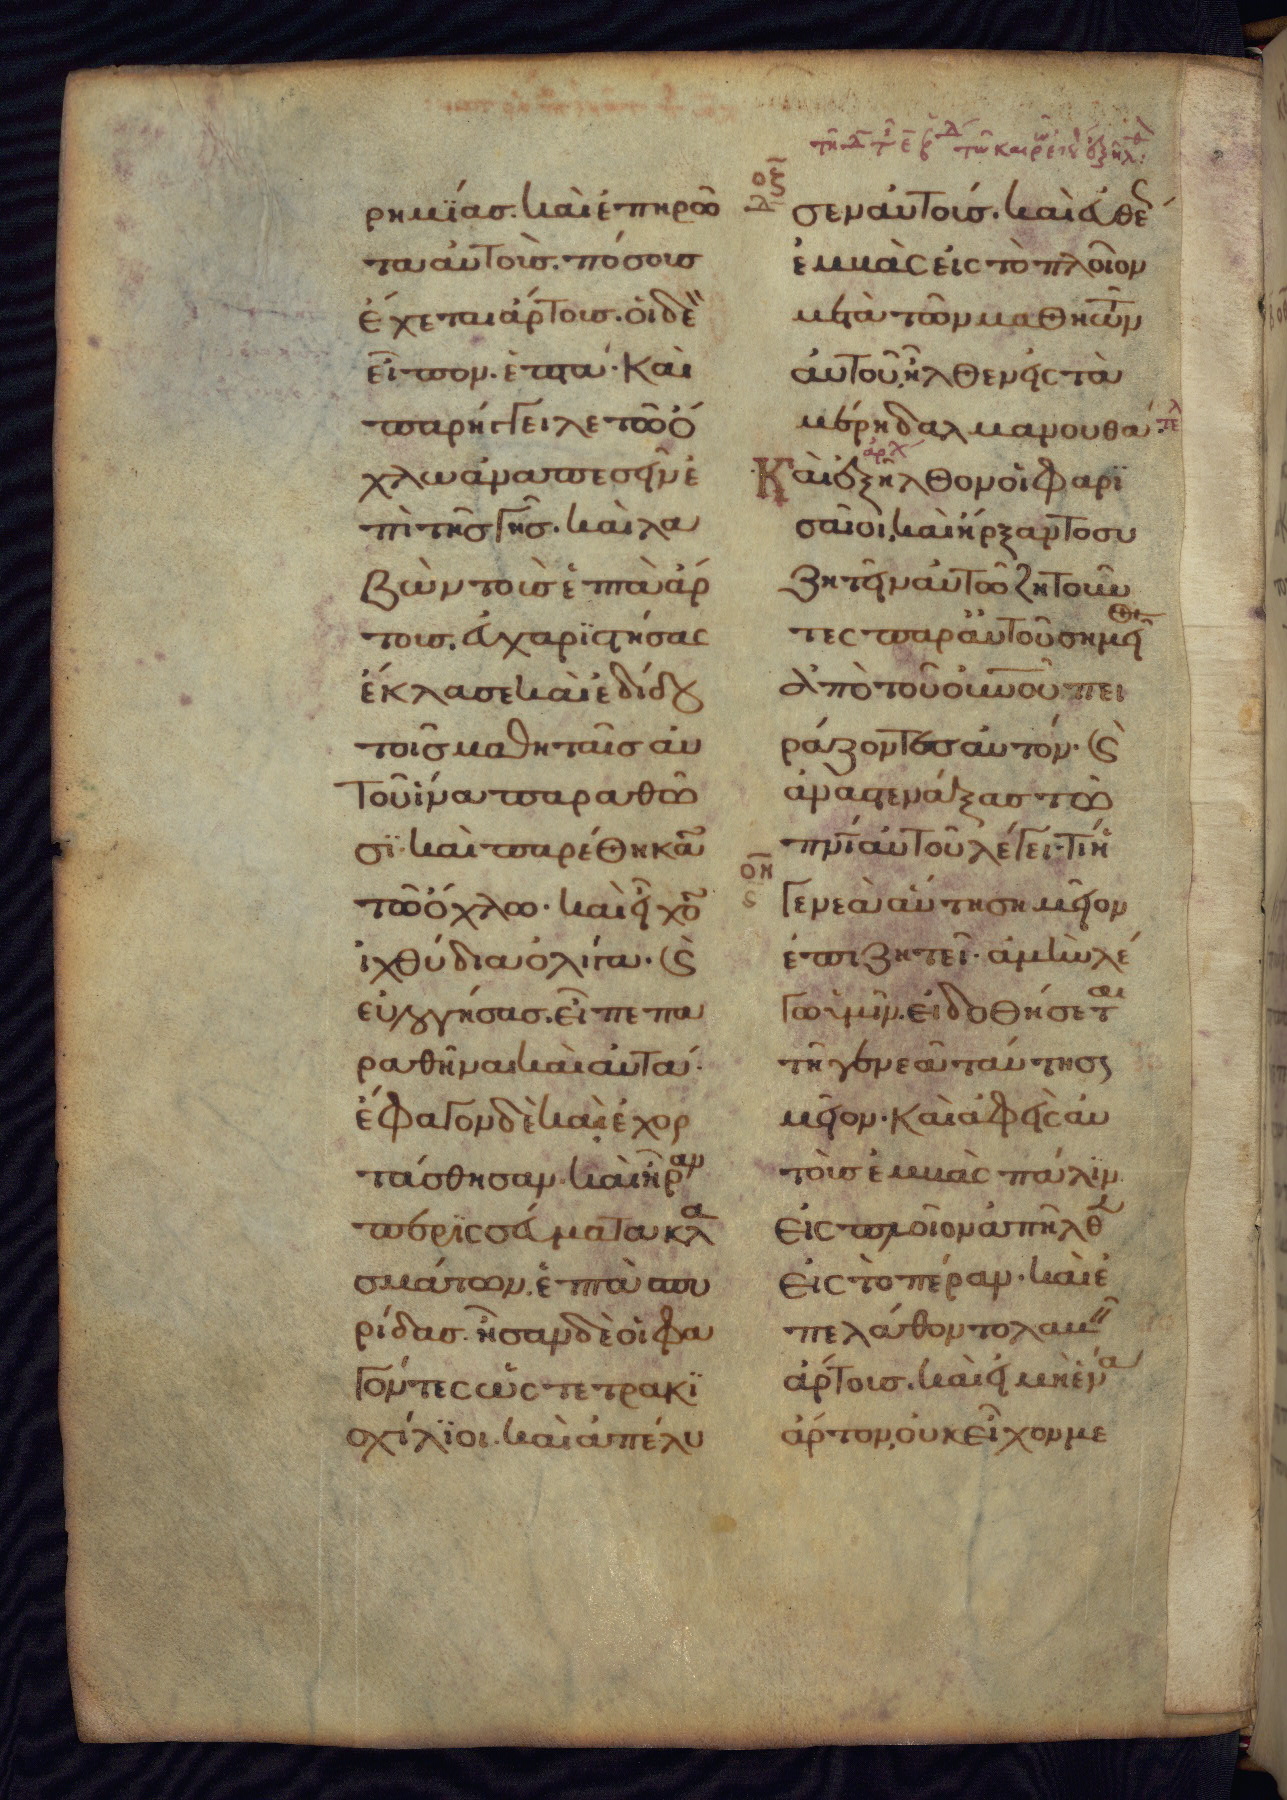 ρημΐας. καὶ ἐπηρω
τα αὐτούς. πόσους
ἔχεται ἄρτους. οἱ δὲ
εἶπον. ἑπτά· Καὶ
παρήγγειλε τῶ ὄ
χλω ἀναπεσεῖν ἐ
πὶ τῆς γῆς. καὶ λα
βὼν τοὺς ἑπτὰ ἄρ
τους. εὐχαρϊστήσας
ἔκλασε καὶ ἐδίδου
τοῖς μαθηταῖς αὐ
τοῦ ἵνα παραθῶ
σϊ· καὶ παρέθηκαν
τῶ ὄχλω· καὶ εἶχον
ἰχθύδια ὀλίγα· καὶ
εὐλογήσας. εἶπε πα
ραθῆναι καὶ αὐτά·
ἔφαγον δὲ καὶ ἐχορ
τάσθησαν. καὶ ἦραν
περϊσσεύματα κλα
σμάτων. ἑπτὰ σπυ
ρίδας. ἦσαν δὲ οἱ φα
γόντες ὡς τετρακϊ
σχίλϊοι. καὶ ἀπέλυ
οζ
δ
σεν αὐτούς. καὶ εὐθέως
ἐμβὰς εἰς τὸ πλοῖον
μετὰ τῶν μαθητῶν
αὐτοῦ, ἦλθεν εἰς τὰ
μέρη δαλμανουθά·
ἀρχ
Καὶ ἐξῆλθον οἱ φαρι
σαῖοι, καὶ ἤρξαντο συ
ζητεῖν αὐτῶ ζητοῦν
τες παρ' αὐτοῦ σημεῖον
ἀπὸ τοῦ οὐνοῦ πει
ράζοντες αὐτόν· καὶ
ἀναστενάξας τῶ
πνι αὐτοῦ λέγει· τί ἡ
οη
ς
γενεὰ αὕτη σημεῖον
ἐπιζητεῖ· ἀμὴν λέ
γω ὑμῖν. εἰ δοθήσεται
τῆ γενεᾶ ταύτη ση
μεῖον· Καὶ ἀφεὶς αὐ
τοὺς ἐμβὰς πάλϊν
εἰς πλοῖον ἀπῆλθεν
εἰς τὸ πέραν· καὶ ἐ
πελάθοντο λαβεῖν
ἄρτους. καὶ εἰ μὴ ἕνα
ἄρτον, οὐκ εἶχον με